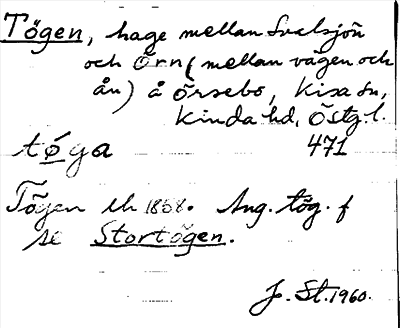 Tögen, hage mellan Svalsjön
och Örn (mellan vägen och
ån) å Örsebo, Kisa sn,
Kinda hd, Östg.l.
tøga 471
Tögen lh 1858. Ang. tög. f
se Stortögen.
J. St. 1960.